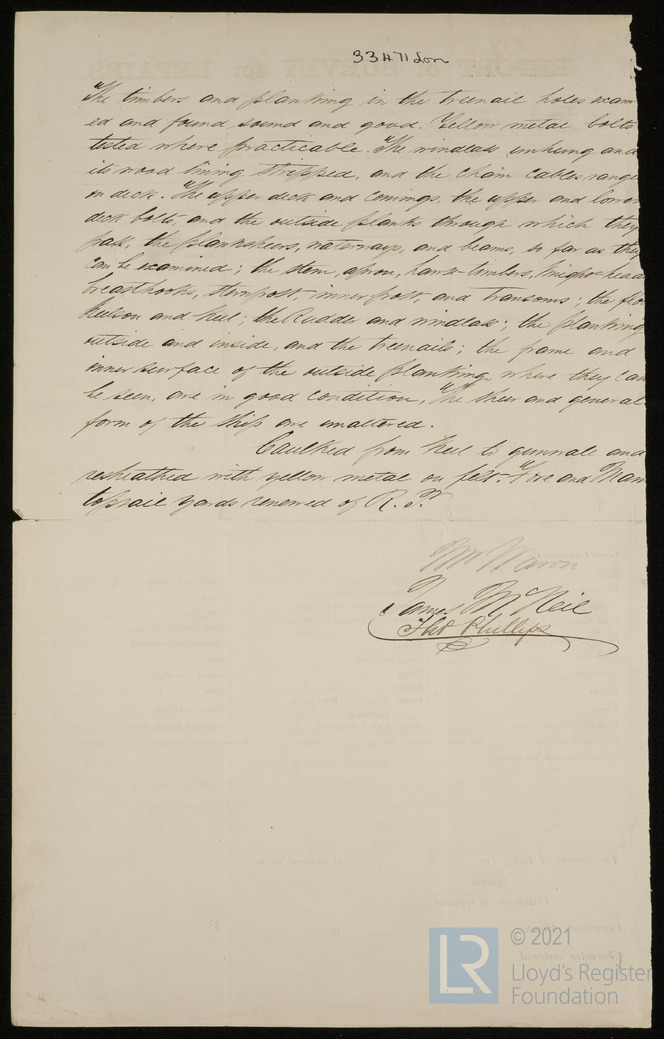 33471 Lon
The timbers and planking in the treenail holes exam
ed and found sound and good. Yellow metal bolts
tested where practicable. The windlass unhung and
its wood lining stripped, and the chain cables range
on deck. The upper deck and comings, the upper and lower
deck bolts, and the outside planks through which they
pass, the plansheers, waterways, and beams, so far as they
can be examined; the stem, apron, hawse timbers, knight head
breasthooks, sternpost, inner post, and transoms; the flo
keelson and keel; the Rudder and windlass; the planking
outside and inside, and the treenails; the frame and
inner surface of the outside planking, where they can
be seen, are in good condition, The sheer and general
form of the ship are unaltered.
Caulked from keel to gunnale and
resheathed with yellow metal on felt. Fore and Main
topsail yards renewed of R. P.
Wm
James McNeil
Thos Phillips
© 2021
LR
Lloyd's Register
Foundation